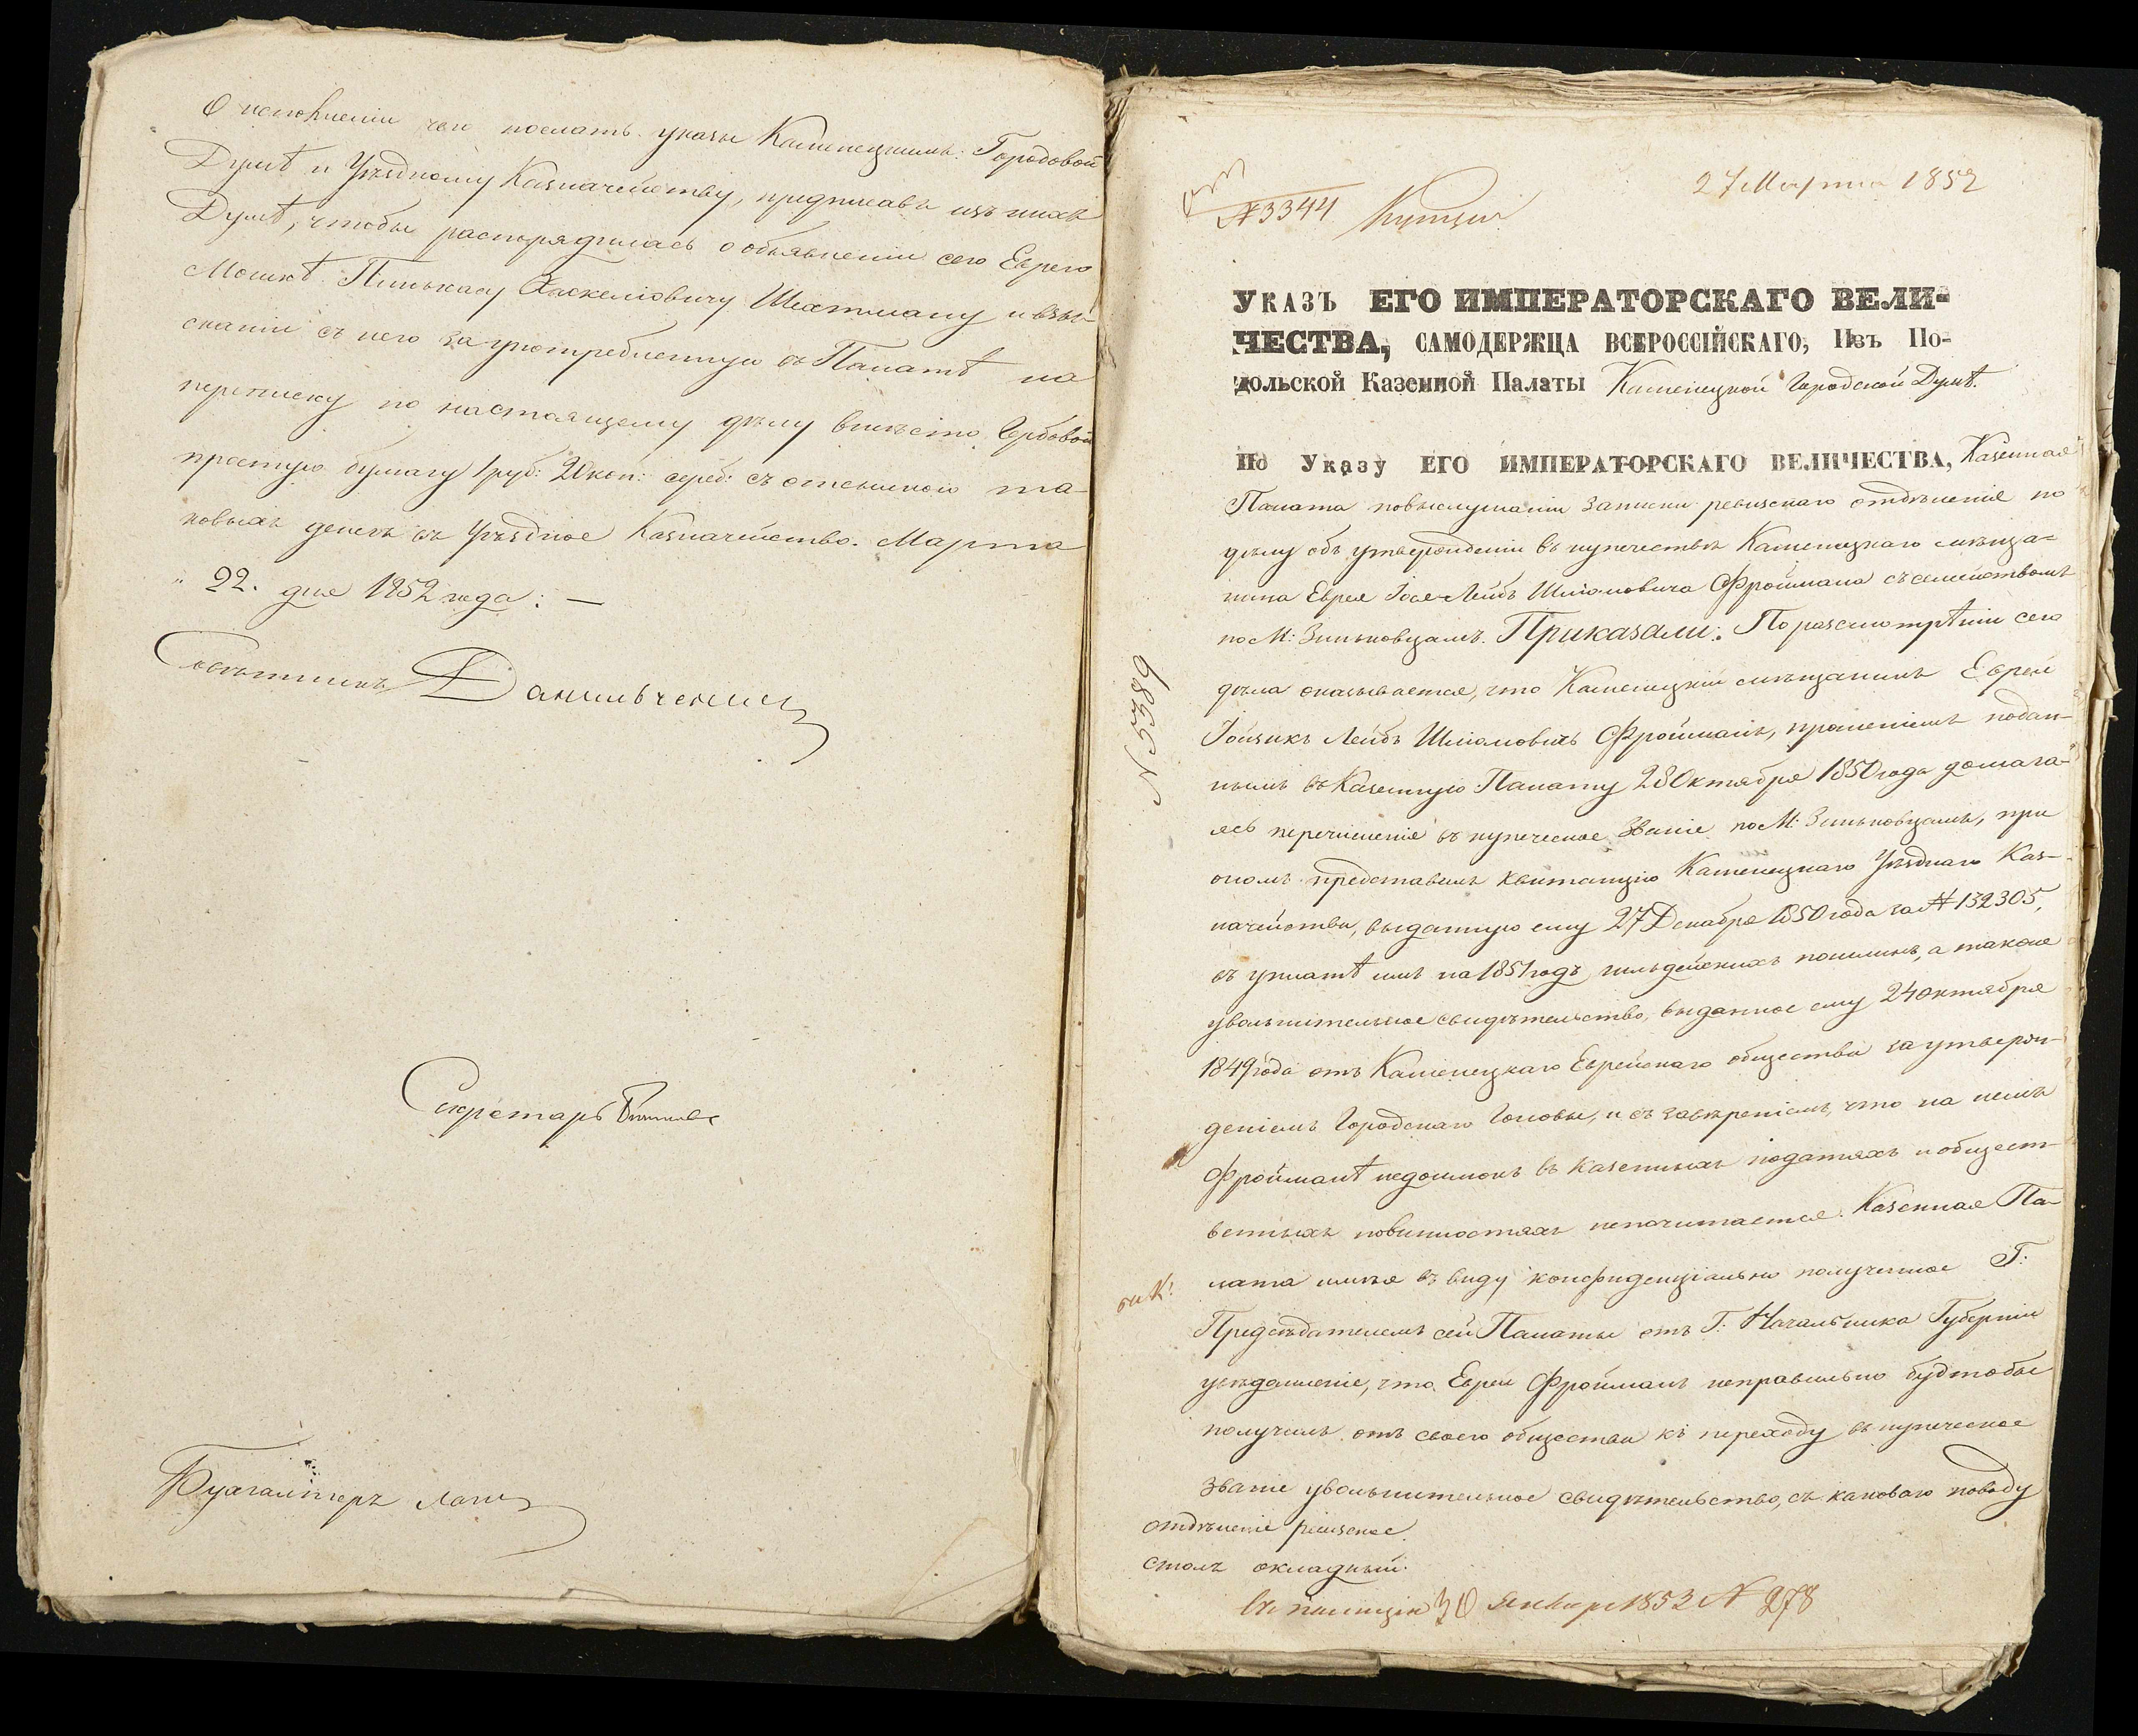 О исполненіи чего послать указы Каменецкимъ: Городовой
Думѣ и Уѣздному Казначейству, предписавъ изъ нихъ
Думѣ, чтобы распорядилась о объявленіи сего Еврею
Мошкѣ Пинькасу Хаскеліовичу Шехтману и взы-
сканіи съ него за употребленную въ Палатѣ на
переписку по настоящему дѣлу вмѣсто Гербовой
простую бумагу 1 руб: 20 коп: сереб: съ отсылкою та-
ковыхъ денегъ въ Уѣздное Казначейство. Марта
" 22. дня 1852 года: —
Совѣтникъ Данильченко
Секретарь
Бухгалтеръ
27 Марта 1852
№ 3344 Купцы
УКАЗЪ ЕГО ИМПЕРАТОРСКАГО ВЕЛИ-
ЧЕСТВА, САМОДЕРЖЦА ВСЕРОССІЙСКАГО, Изъ По-
дольской Казенной Палаты Каменецкой Городской Думѣ.
По Указу ЕГО ИМПЕРАТОРСКАГО ВЕЛИЧЕСТВА, Казенная
Палата повыслушаніи записки ревизскаго отдѣленія по
дѣлу объ утвержденіи въ купечествѣ Каменецкаго мѣща-
нина Еврея Іося-Лейбъ Шліомовича Фроймана съ семействомъ
по М: Зиньковцамъ. Приказали: По разсмотрѣніи сего
дѣла оказывается, что Каменецкій мѣщанинъ Еврей
Іойзикъ Лейбъ Шліомовичъ Фройманъ, прошеніемъ подан-
нымъ въ Казенную Палату 28 Октября 1850 года домага-
ясь перечисленія въ купеческое званіе по М: Зиньковцамъ, при
ономъ представилъ квитанцію Каменецкаго Уѣзднаго Каз-
начейства, выданную ему 27 Декабря 1850 года за № 132305,
въ уплатѣ имъ на 1851 годъ гильдейскихъ пошлинъ, а также
увольнительное свидѣтельство, выданное ему 24 октября
1849 года отъ Каменецкаго Еврейскаго общества за утверж-
деніемъ Городскаго Головы, и съ завѣреніемъ, что на немъ
Фройманѣ недоимокъ въ казенныхъ податяхъ и общест-
венныхъ повинностяхъ непочитается. Казенная Па-
лата имѣя въ виду конфиденціально полученное Г:
Предсѣдателемъ сей Палаты отъ Г: Начальника Губерніи
увѣдомленіе, что Еврей Фройманъ неправильно будтобы
получилъ отъ своего общества къ переходу въ купеческое
званіе увольнительное свидѣтельство, съ каковаго поводу
отдѣленіе ревизское
столъ окладный.
№ 5389
въ полицію 30 Января 1853 № 278